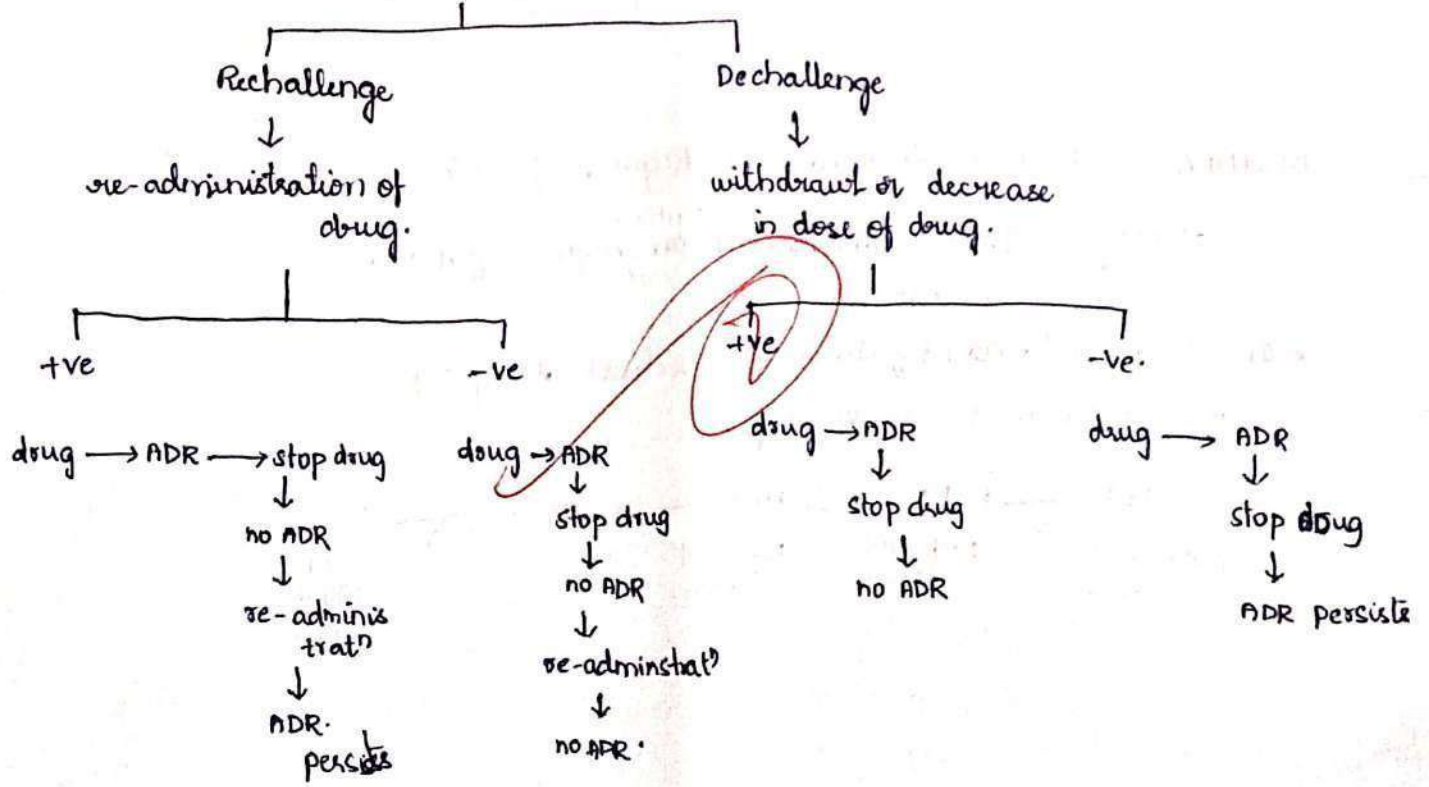 Rechallenge
↓
re-administration of
drug.
+ve
-ve .
drug → ADR → stop drug
↓
no ADR
↓
re-adminis
tratⁿ
↓
ADR.
persists
drug → ADR
↓
stop drug
↓
no ADR
↓
re-adminstratⁿ
↓
no ADR.
Dechallenge
↓
withdrawt or decrease
in dose of drug.
+ve
-ve.
drug → ADR
↓
stop drug
↓
no ADR
drug → ADR
↓
stop drug
↓
ADR persists